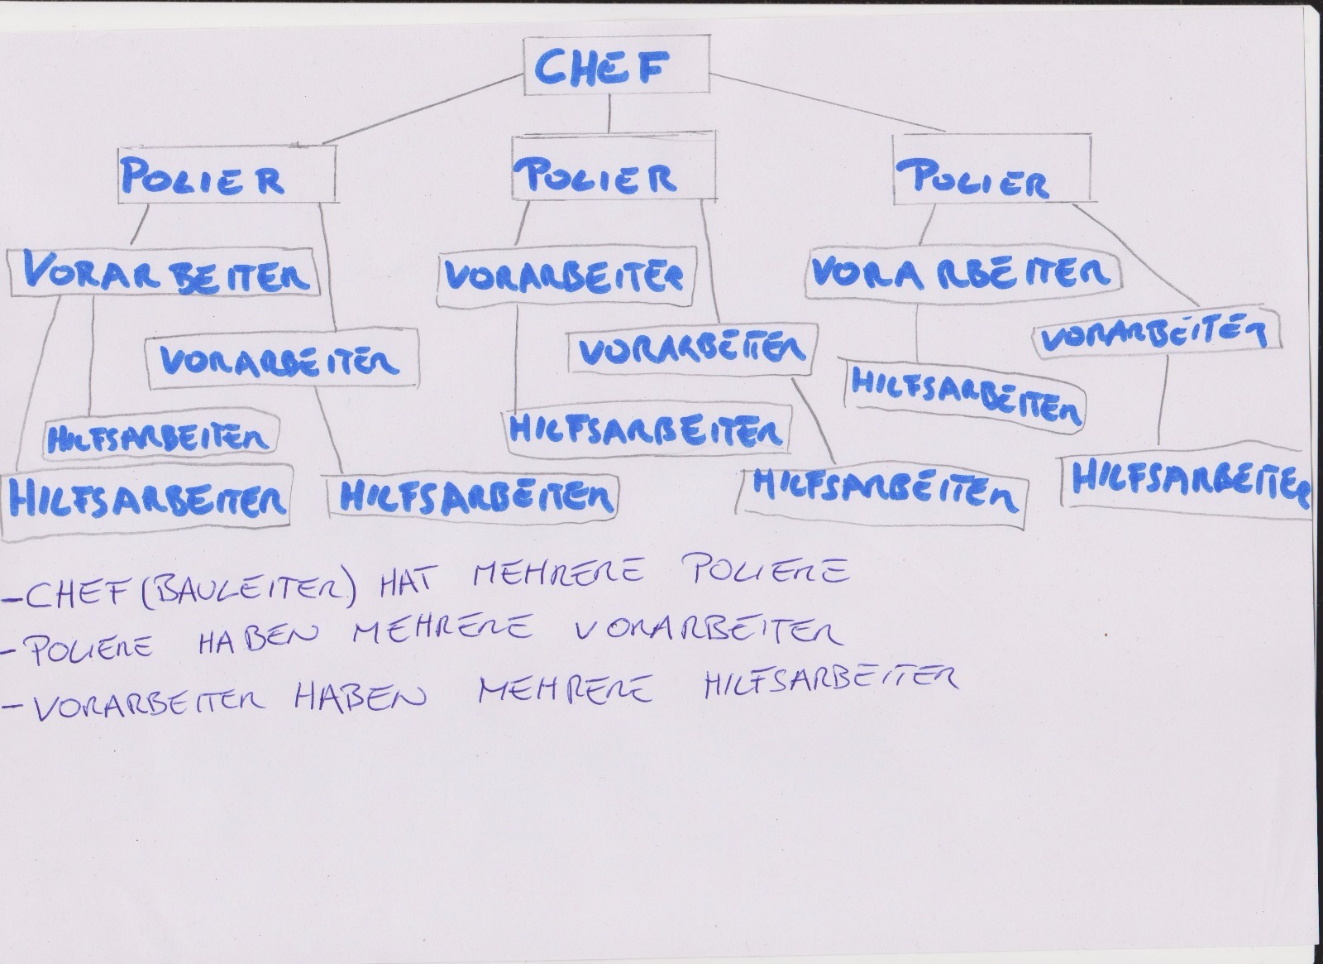 CHEF
POLIER POLIER POLIER
VORARBEITER VORARBEITER VORARBEITER
VORARBEITER VORARBEITER VORARBEITER
HILFSARBEITER HILFSARBEITER HILFSARBEITER
HILFSARBEITER HILFSARBEITER HILFSARBEITER HILFSARBEITER
- CHEF (BAULEITER) HAT MEHRERE POLIERE
- POLIERE HABEN MEHRERE VORARBEITER
- VORARBEITER HABEN MEHRERE HILFSARBEITER